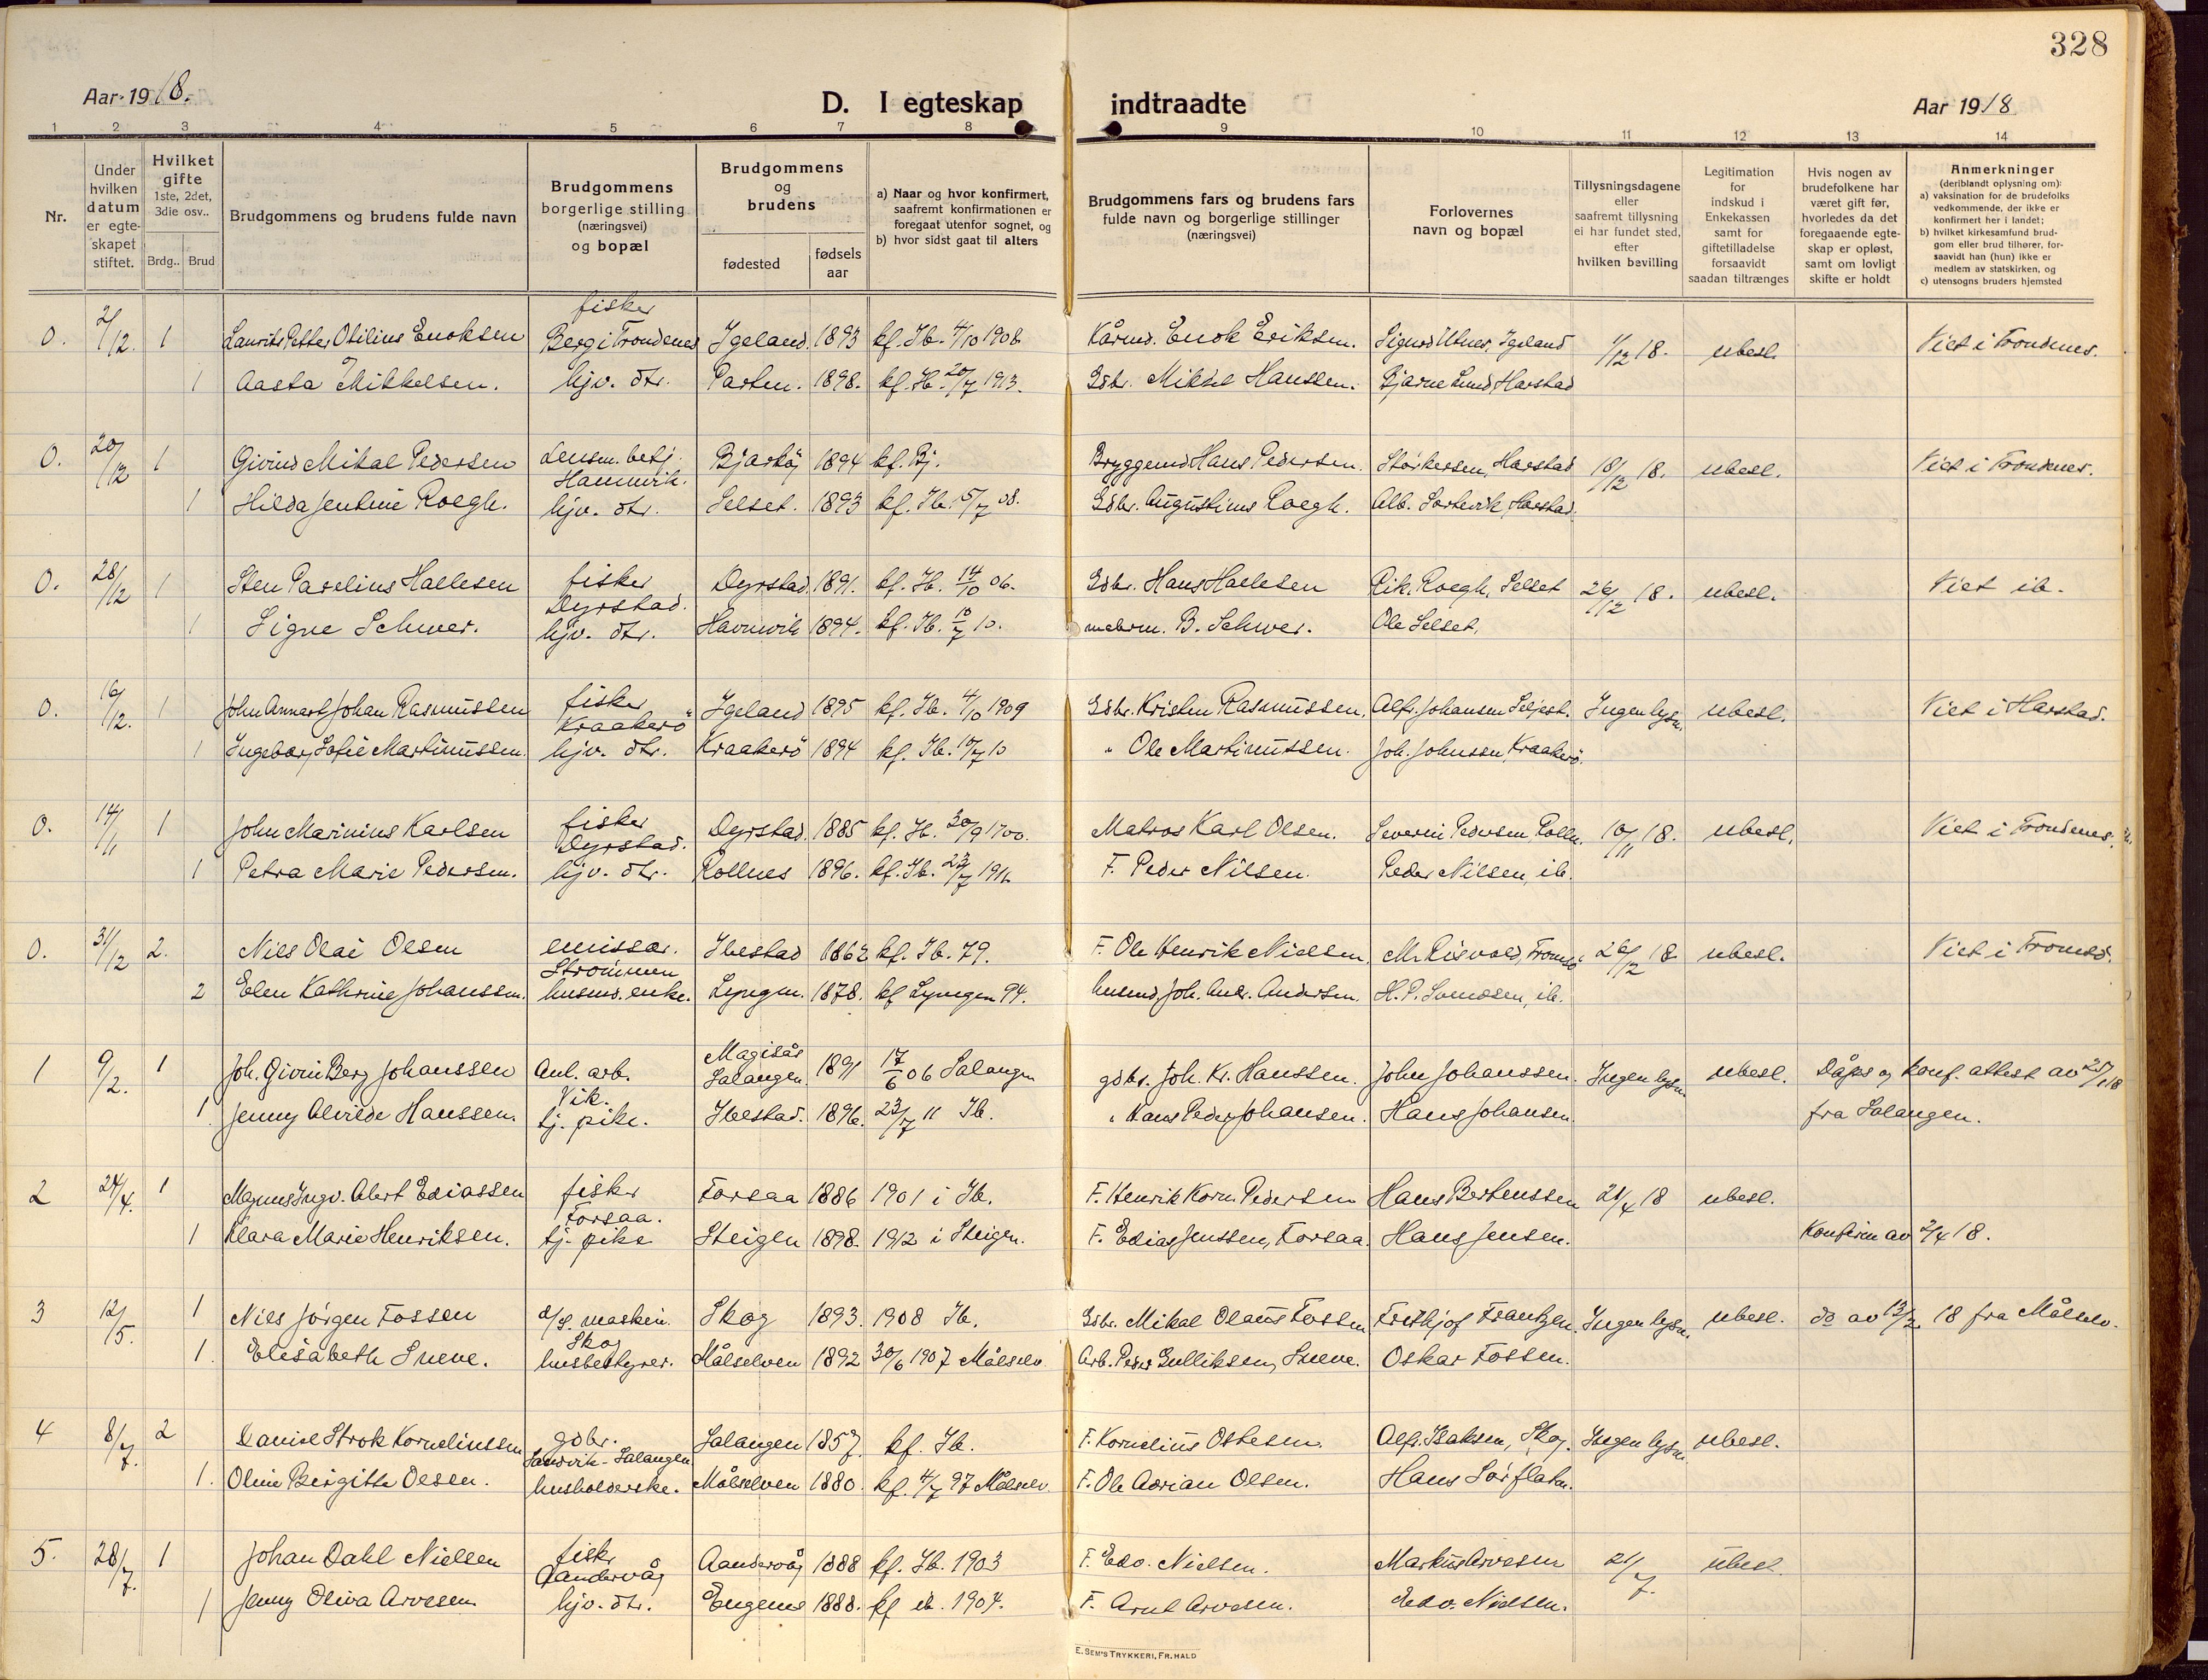 328
Aar 1918.
D. I egteskap indtraadte
Aar 1918
1 2 3 4 5 6 7 8 9 10 11 12 13 14
Nr.
Under hvilken datum er egte-skapet stiftet.
Hvilket gifte 1ste, 2det, 3die osv..
Brdg.. Brud
Brudgommens og brudens fulde navn
Brudgommens borgerlige stilling (næringsvei) og bopæl
Brudgommens og brudens
fødested
fødsels aar
a) Naar og hvor konfirmert, saafremt konfirmationen er foregaat utenfor sognet, og
b) hvor sidst gaat til alters
Brudgommens fars og brudens fars fulde navn og borgerlige stillinger (næringsvei)
Forlovernes navn og bopæl
Tillysningsdagene eller saafremt tillysning ei har fundet sted, efter hvilken bevilling
Legitimation for indskud i Enkekassen samt for giftetilladelse forsaavidt saadan tiltrænges
Hvis nogen av brudefolkene har været gift før, hvorledes da det foregaaende egte-skap er opløst, samt om lovligt skifte er holdt
Anmerkninger (deriblandt oplysning om):
a) vaksination for de brudefolks vedkommende, der ikke er konfirmert her i landet;
b) hvilket kirkesamfund brud-gom eller brud tilhører, for-saavidt han (hun) ikke er medlem av statskirken, og
c) utensogns bruders hjemsted
0. 1 Laurits Petter Otilius Enoksen fisker Berg i Trondenes Igeland. 1893 kf. Ib. 4/10 1908 Kårmd. Enok Eriksen. Sigurd Utnes, Igeland 1/12 18. ubesl. Viet i Trondenes.
1 Aasta Mikkelsen. hjv. dtr. 1898. kf. Ib. 20/7 1913. Gdbr. Mikkel Hanssen. Bjarne Lund, Harstad
0. 20/12 1 Eivind Mikal Pedersen Lensm. betj. Hamnvik. Bjarköy 1894 kf. Bj. Hans Pedersen. Störkersen, Harstad 18/12 18. ubesl. Viet i Trondenes.
1 Hilda Jentine Roegh. hjv. dtr. Selset. 1893 kf. Ib. 5/7 08. Gdbr. Augustinus Roegh. Alb. Sortevik, Harstad.
0. 28/12 1 Sten Parelius Hallesen fisker Dyrstad. Dyrstad 1891. kf. Ib. 14/10 06. Gdbr. Hans Hallesen Rik. Roegh, Selset 26/12 18. ubesl. Viet ib.
1 Signe Schwer. hjv. dtr. Havnvik 1894. kf. Ib. 10/7 10. B. Schwer. Ole Selset,
0. 16/12. 1 John Annart Johan Rasmussen fisker Kraakerö Igeland 1895 kf. Ib. 4/10 1909 Gdbr. Kristen Rasmussen. Alfr. Johansen Ingen lysn. ubesl. Viet i Harstad.
1 Ingeborg Sofie Martinussen. hjv. dtr. Kraakerö 1894 kf. Ib. 10/7 10 " Ole Martinussen. Joh. Johnssen, Kraakerö.
0. 14/11 1 John Marinius Karlsen fisker Dyrstad. Dyrstad. 1885 kf. Ib. 30/9 1700. Matros Karl Olsen. Severin Pedersen, Rolln. 10/11 18. ubesl. Viet i Trondenes.
1 Petra Marie Pedersen. hjv. dtr. Rollnes 1896. kf. Ib. 23/7 1911. F. Peder Nilsen. Peder Nilsen, ib.
0. 31/12 2. Nils Olai Olsen emissær. Strömmen Ibestad 1862 kf. Ib. 79. F. Ole Henrik Nielsen. M. Risvold, Tromsö 26/12 18. ubesl. Viet i Tromsö.
2 Elen Kathrine Johanssen. husmd. enke. Lyngen. 1878. kf Lyngen 94. husmd. Joh. Andr. Andersen. H. P. Svendsen, ib.
1 9/2. 1 Joh. Eivin Berg Johanssen Anl. arb. Vik. Salangen. 1891 17/6 06 Salangen gdbr. Joh. Kr. Hanssen. John Johanssen. Ingen lysn. ubesl. Dåps og konf. attest av 25/1 18
1 Jenny Alvilde Hanssen. tj. pike. Ibestad. 1896. 23/7 11 Ib. " Hans Peder Johansen. Hans Johansen. fra Salangen.
2 24/4. 1 Magnus Ingv. Albert Ediassen fisker Forsaa. Forsaa 1886 1901 i Ib. F. Henrik Korn. Pedersen Hans Bertenssen 21/4 18 ubesl.
1 Klara Marie Henriksen. tj. pike Steigen 1898. 1912 i Steigen. F. Edias Jenssen, Forsaa. Hans Jensen. Konfirm av 2/4 18.
3 12/5. 1 Nils Jörgen Fossen maskin. Skog Skog 1893. 1908 Ib. Gdbr. Mikal Olaus Fossen Frithjof Frantzen. Ingen lysn. ubesl. do av 13/2 18 fra Målselv.
1. Elisabeth Sneve. husbestyrer. Målselven 1892 30/6 1907 Målselv. Arb. Peder Gulliksen, Sneve. Oskar Fossen.
4 8/7. 2 Daniel Strok Korneliussen gdbr. Sandvik-Salangen Salangen 1857. kf. Ib. F. Kornelius Ostesen. Alfr. Isaksen, Skog. Ingen lysn. ubesl.
1. Oline Birgitte Olsen. husholderske. Målselven 1880. kf. 4/7 97 Målselv. F. Ole Adrian Olsen. Hans Sörflaten.
5. 28/7. 1 Johan Dahl Nielsen fisker Aandervåg Aandervåg 1888 kf. Ib. 1903 F. Edv. Nielsen. Markus Arvesen 21/7. ubesl.
1 Jenny Oliva Arvesen hjv. dtr. Engenes 1888. kf ib. 1904. F. Arnt Arvesen. Edv. Nielsen.
E. SEM'S TRYKKERI, FR.HALD